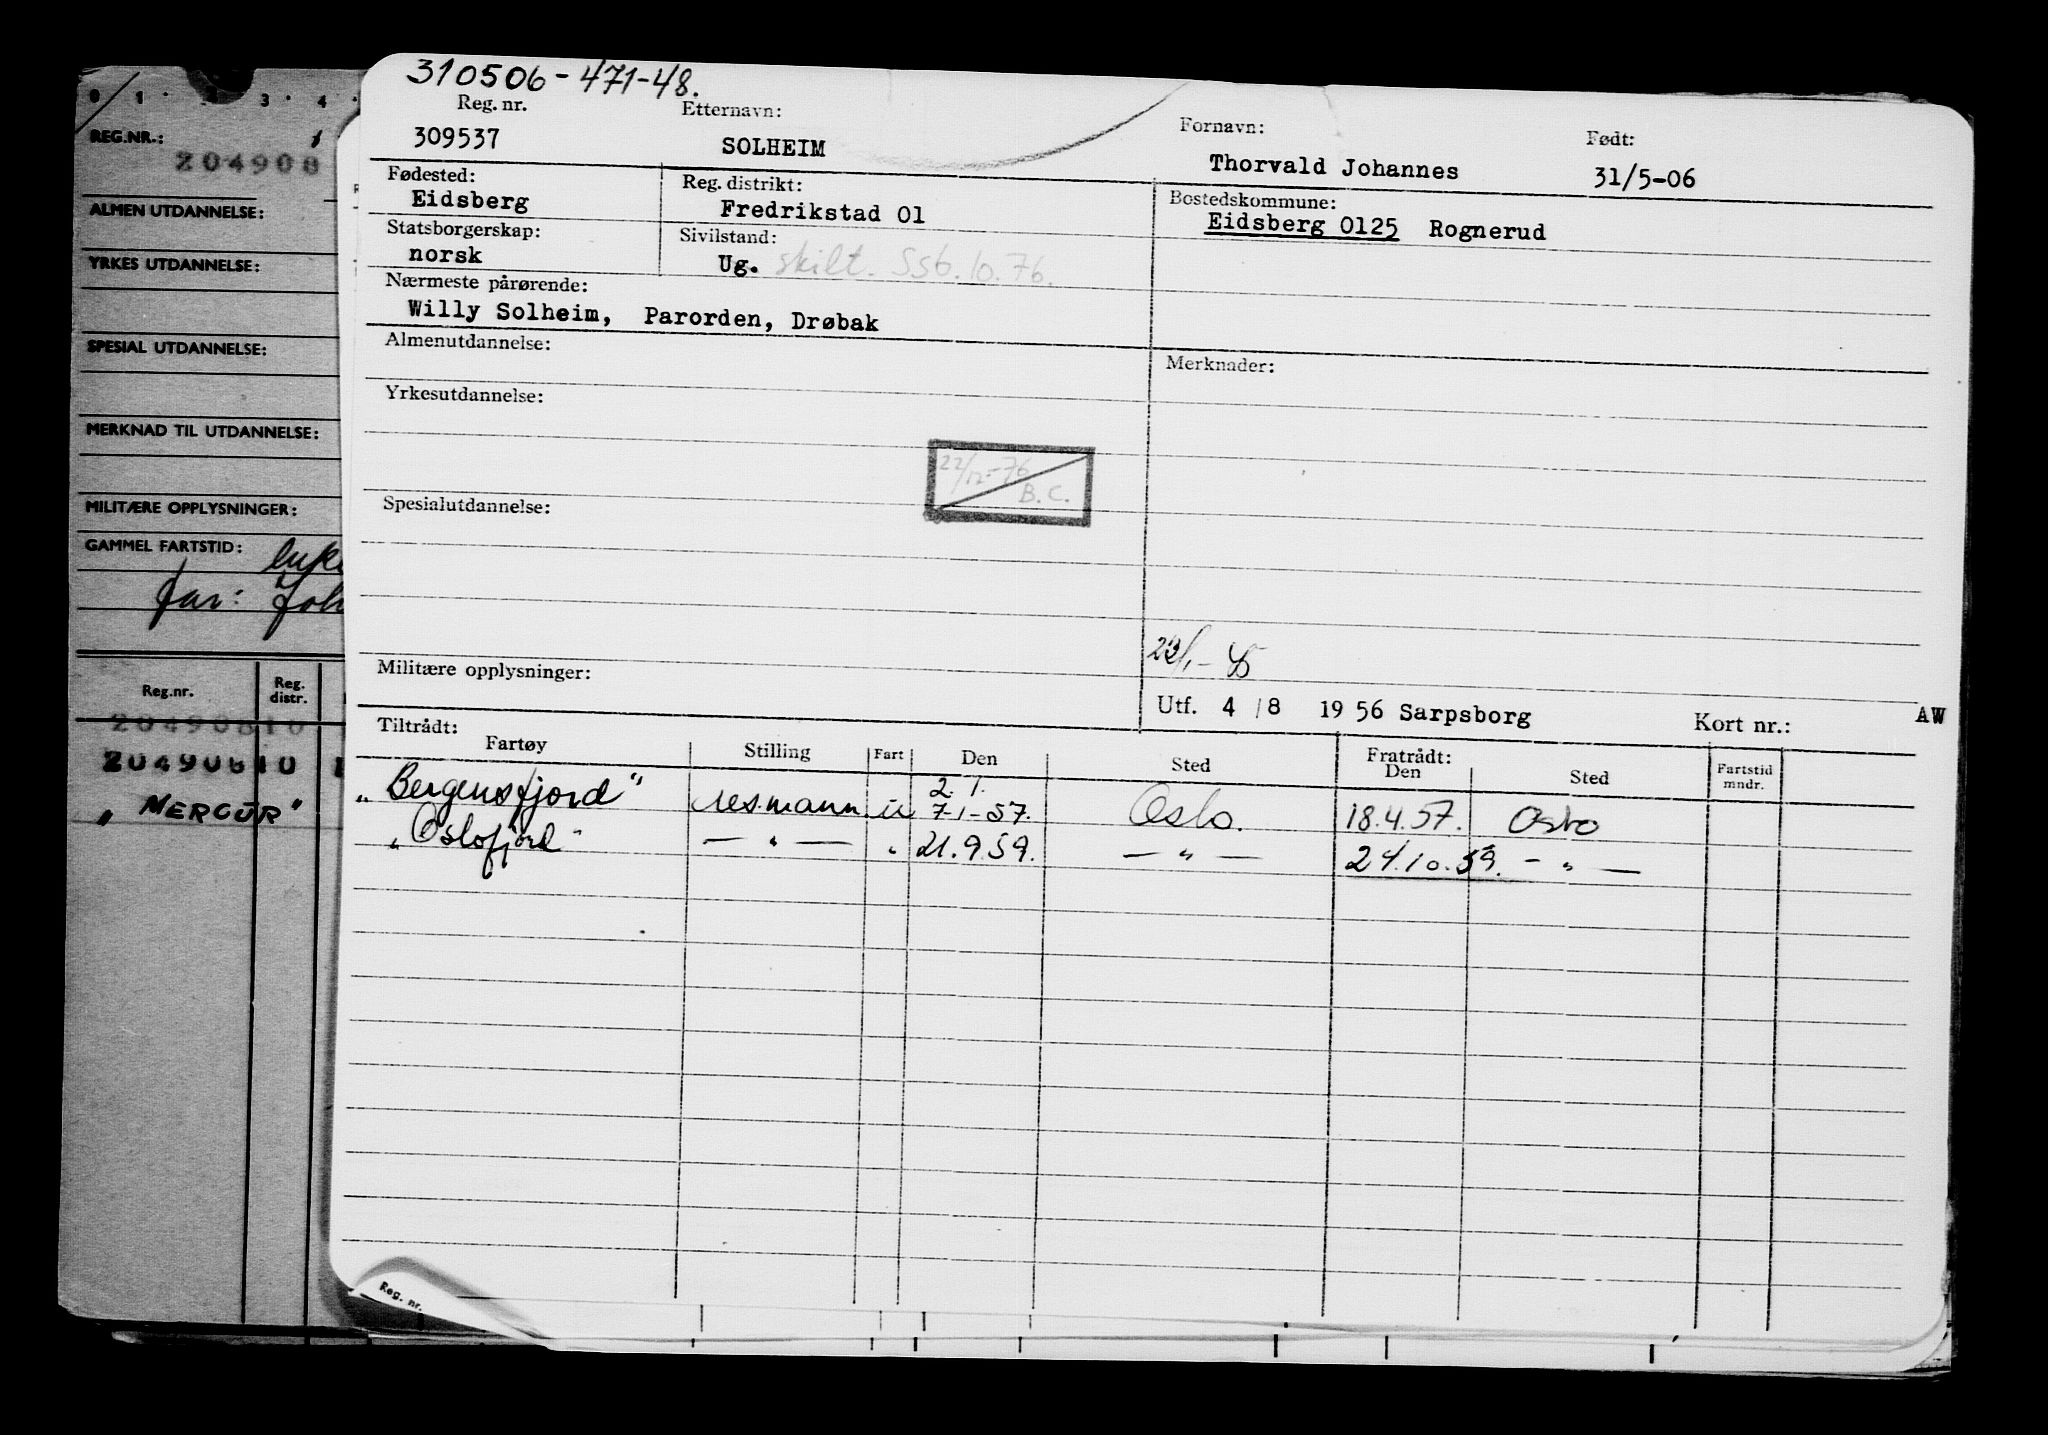 310506-471-48.
Reg. nr. Etternavn: Fornavn: Født:
309537 SOLHEIM Thorvald Johannes 31/5-06
Fødested: Reg. distrikt: Bostedskommune:
Eidsberg Fredrikstad 01 Eidsberg 0125 Rognerud
Statsborgerskap: Sivilstand:
norsk Ug. skilt. SS6.10.76.
Nærmeste pårørende:
Willy Solheim, Parorden, Drøbak
Almenutdannelse: Merknader:
Yrkesutdannelse:
22/12-76
B.C.
Spesialutdannelse:
Militære opplysninger:
Utf. 4/8 1956 Sarpsborg Kort nr.: AW
Tiltrådt: Fratrådt:
Fartøy Stilling Fart Den Sted Den Sted Fartstid mndr.
2.1.
"Bergensfjord" u 7-1-57. Oslo. 18.4.57. Oslo
"Oslofjord" — " — " 21.9.59. — " — 24.10.59. — " —
0 1 3 4
REG.NR.:
204908
ALMEN UTDANNELSE:
YRKES UTDANNELSE:
SPESIAL UTDANNELSE:
MERKNAD TIL UTDANNELSE:
MILITÆRE OPPLYSNINGER:
GAMMEL FARTSTID:
far: Joh
Reg.nr. Reg. distr.
20490810
20490810
"MERCUR"
Reg. nr.